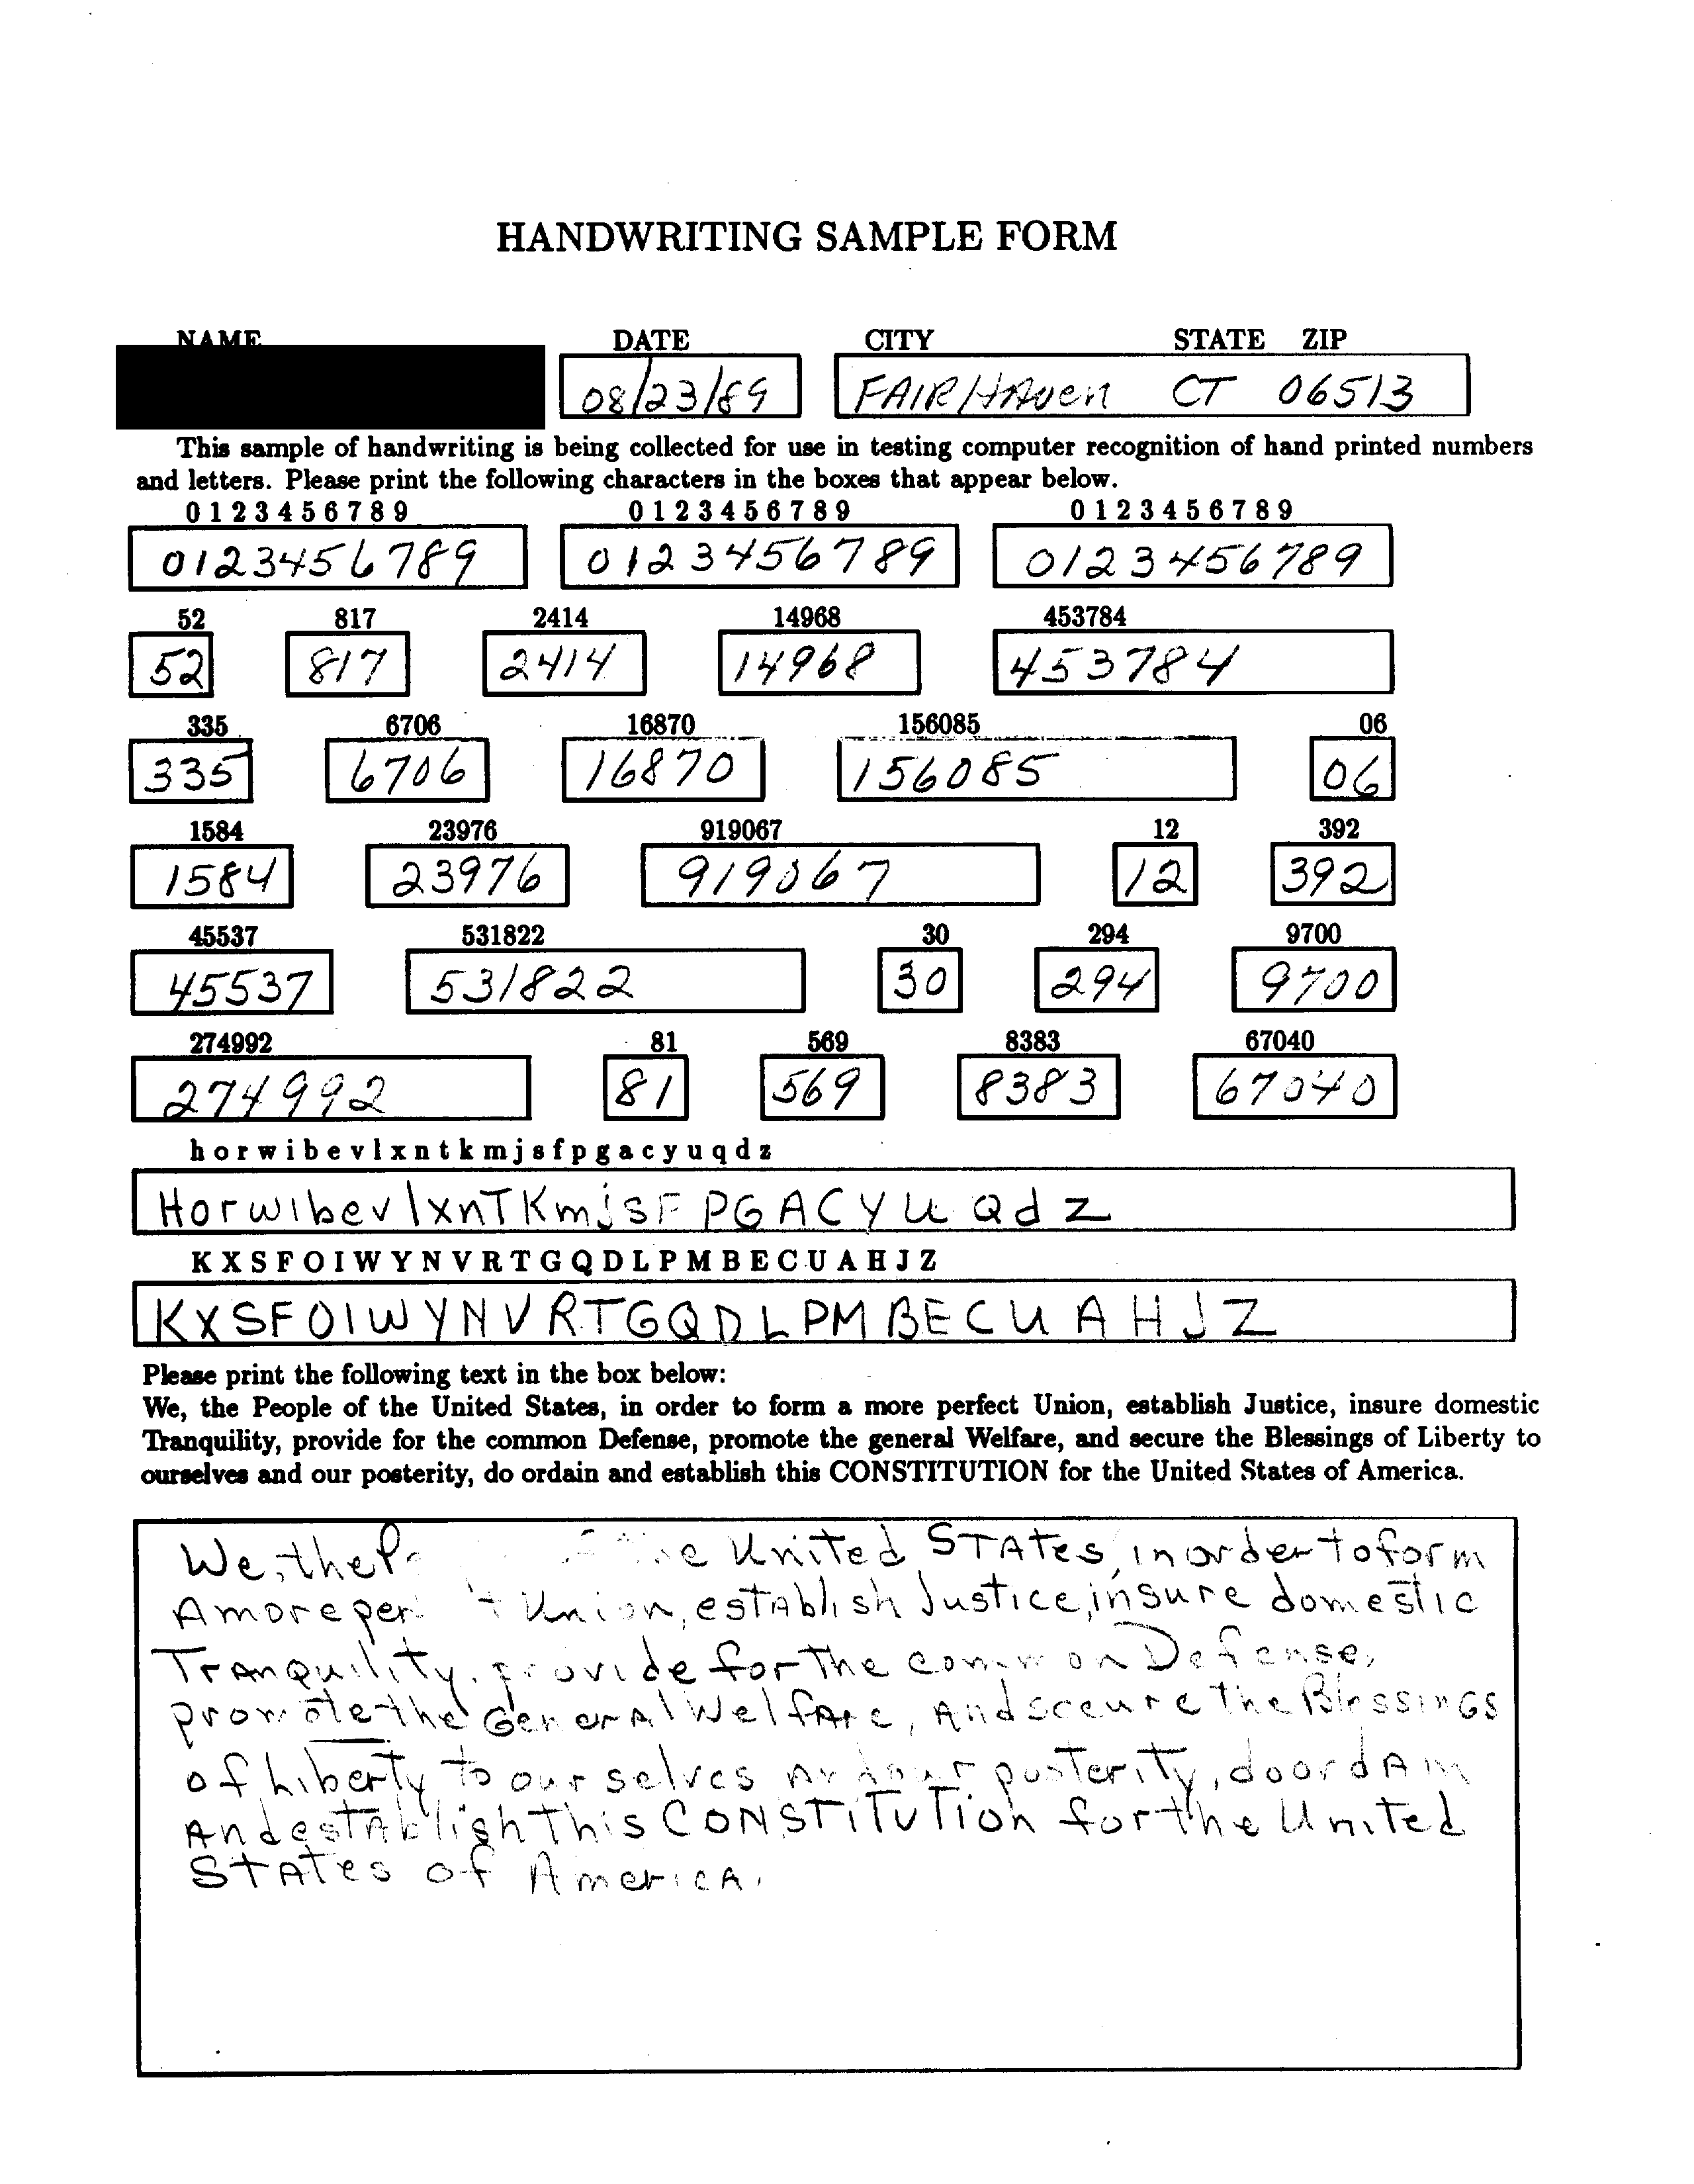 HANDWRITING SAMPLE FORM
NAME DATE CITY STATE ZIP
08/23/89 FAIRHAven CT 06513
This sample of handwriting is being collected for use in testing computer recognition of hand printed numbers
and letters. Please print the following characters in the boxes that appear below.
0 1 2 3 4 5 6 7 8 9 0 1 2 3 4 5 6 7 8 9 0 1 2 3 4 5 6 7 8 9
0123456789 0123456789 0123456789
52 817 2414 14968 453784
52 817 2414 14968 453784
335 6706 16870 156085 06
335 6706 16870 156085 06
1584 23976 919067 12 392
1584 23976 919067 12 392
45537 531822 30 294 9700
45537 531822 30 294 9700
274992 81 569 8383 67040
274992 81 569 8383 67040
h o r w i b e v l x n t k m j s f p g a c y u q d z
HorwibevlxnTKmjsF PGACYU Qd Z
K X S F O I W Y N V R T G Q D L P M B E C U A H J Z
KXSFOIWYNVRTGQDLPMBECUAHJZ
Please print the following text in the box below:
We, the People of the United States, in order to form a more perfect Union, establish Justice, insure domestic
Tranquility, provide for the common Defense, promote the general Welfare, and secure the Blessings of Liberty to
ourselves and our posterity, do ordain and establish this CONSTITUTION for the United States of America.
We, the United STATes, in order to form
A more Union, esTAblish Justice, insure domestic
TRANquility, provide for The common Defense,
promote the GenerAl WelfAre, And secure The BlessinGS
of Liberty To our selves And our posTeriTy, do ordAin
And esTAblish This CONSTITUTion for the United
STATes of AmericA.